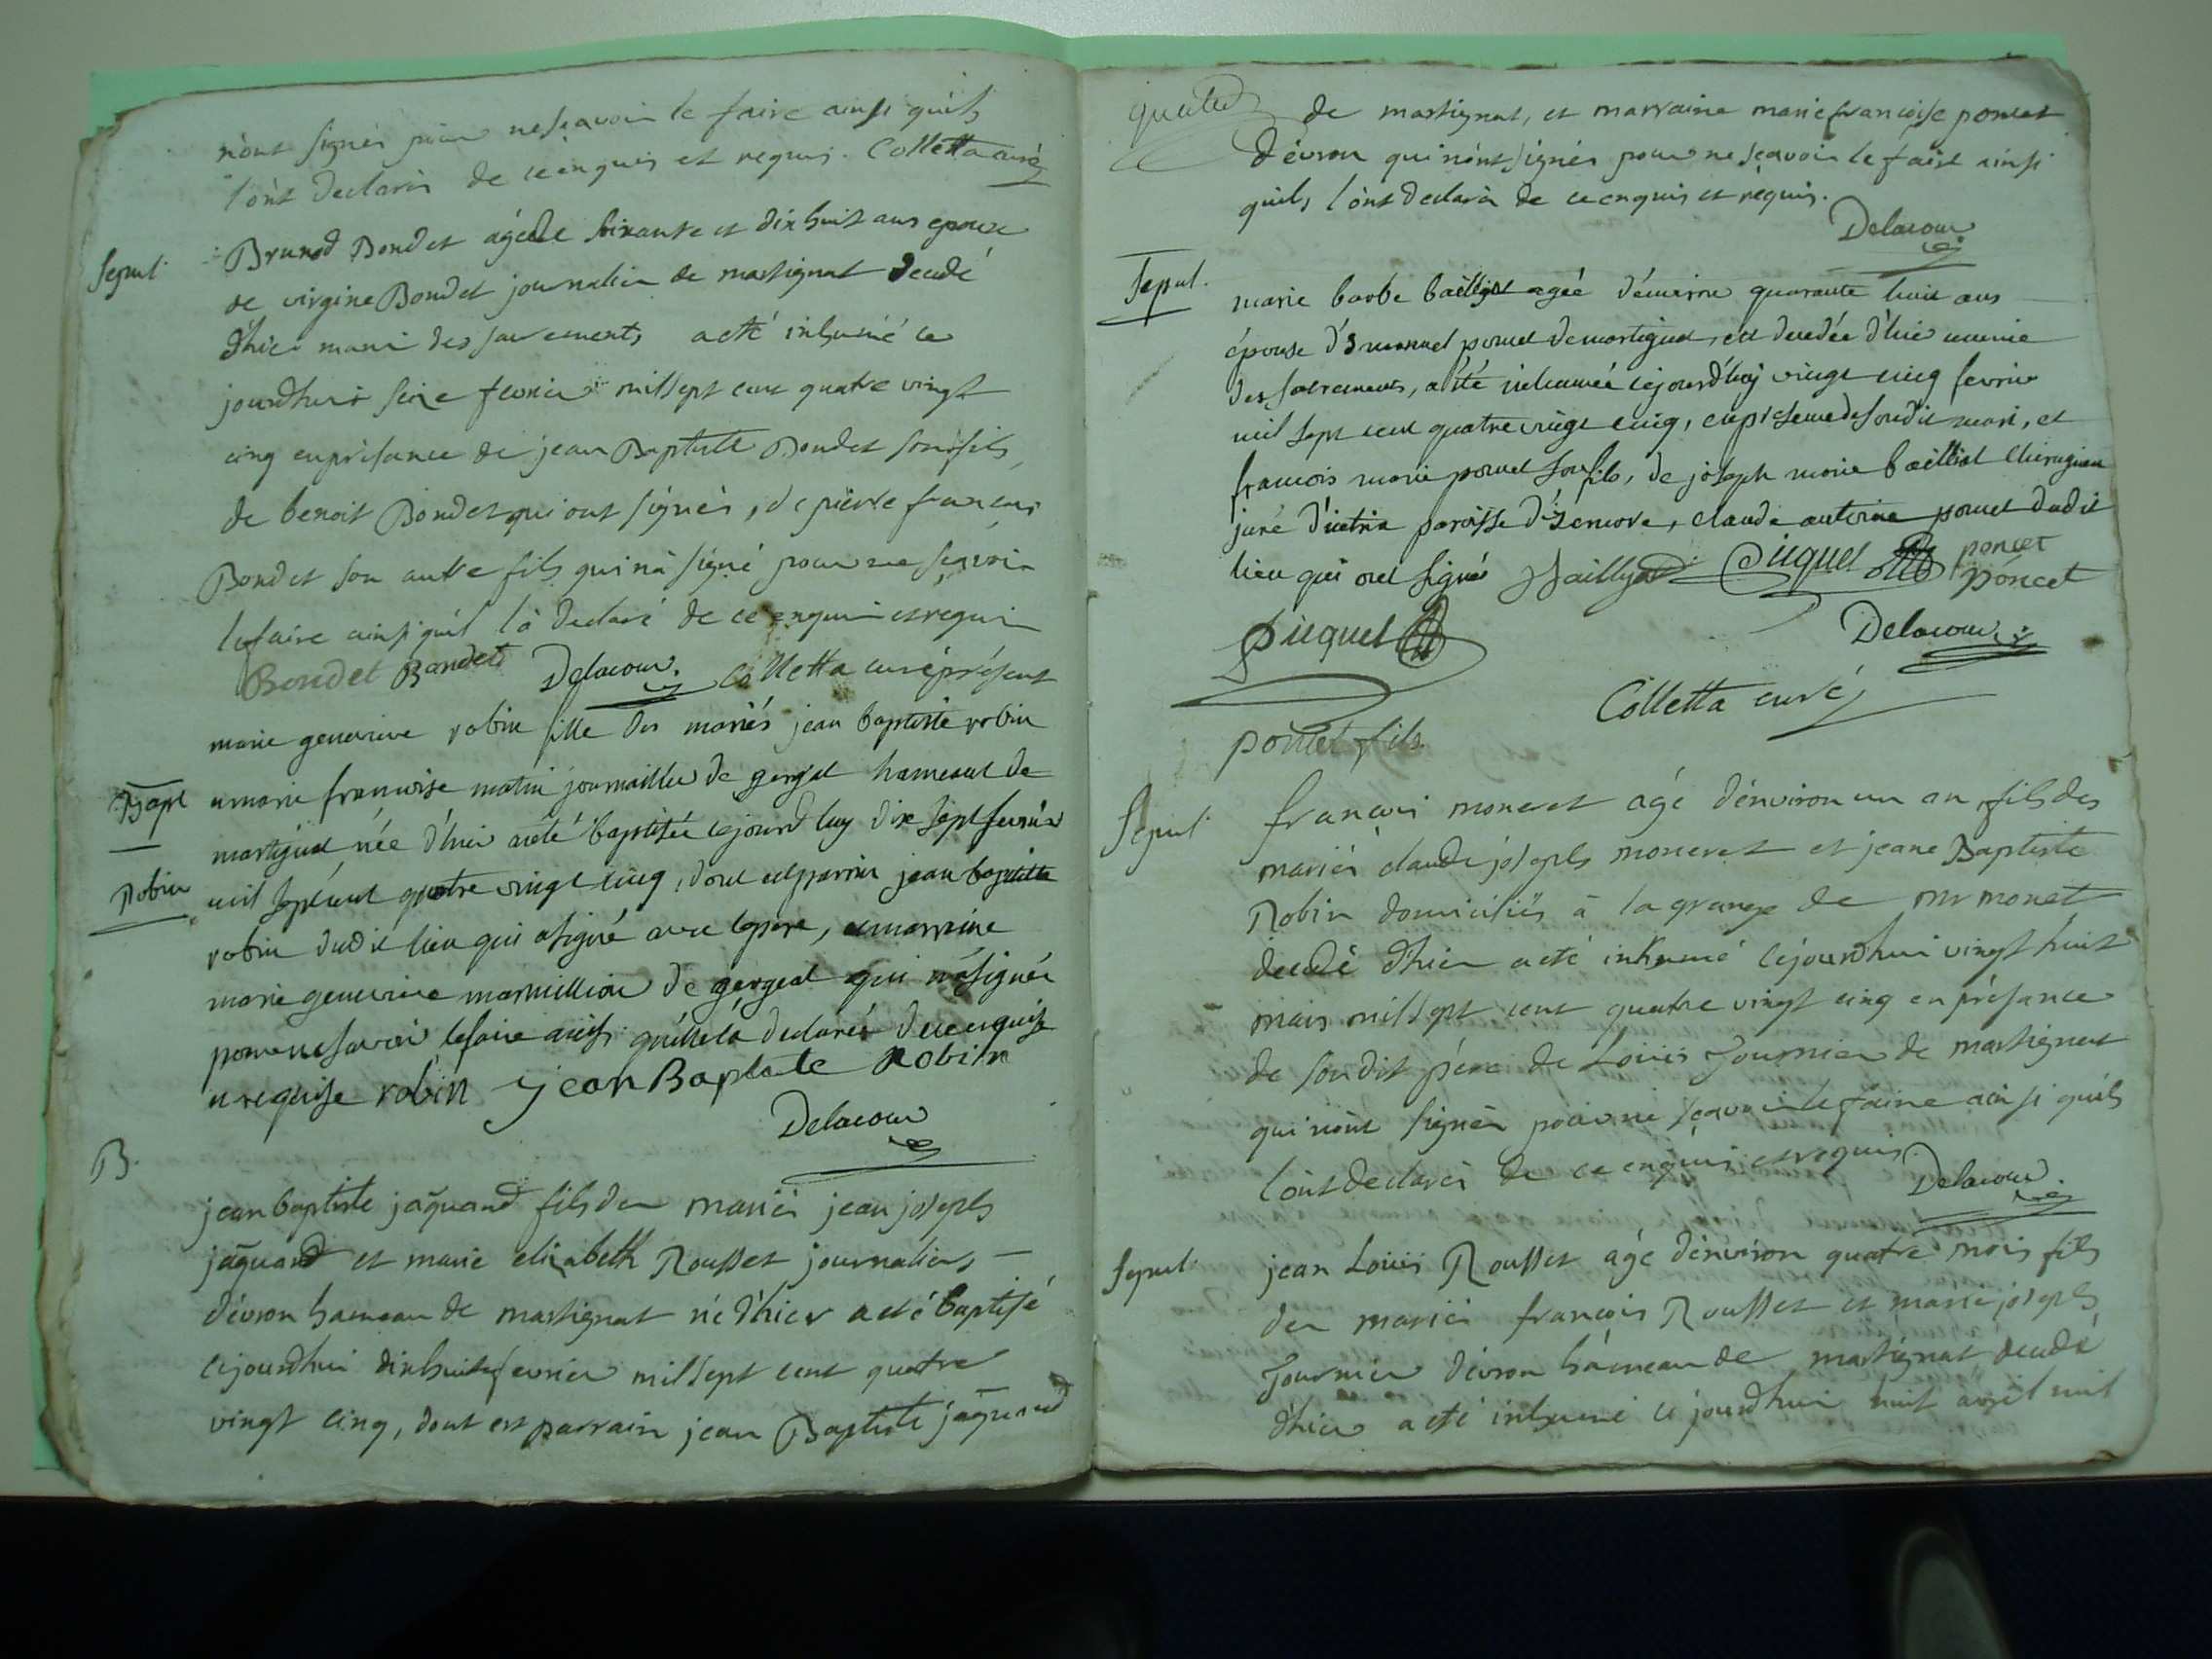 n'ont signés pour ne sçavoir le faire ainsi qu'ils
l'ont declarés de ce enquis et requis. Colletta curé
Sepul.
Brunod Bondet agé de soixante et dix huit ans epoux
de virgine Bondet journalier de martignat decedé
d'hier muni des sacrements a eté inhumé ce
jourd'hui seize fevrier mil sept cent quatre vingt
cinq en presance de jean Baptiste Bondet son fils
de benoit Bondet qui ont signés, de pierre francois
Bondet son autre fils qui n'a signé pour ne sçavoir
le faire ainsi qu'il l'a declaré de ce enquis et requis
Bondet Bondet Delacour. Colletta curé présent
Bapt
Robin
marie genevieve robin fille des mariés jean baptiste robin
et marie francoise matin journaillier de gergeat hameaut de
martignat née d'hier a eté baptisée cejourd'huy dix sept fevrier
mil sept cent quatre vingt cinq, dont est parrin jean baptiste
robin dudit lieu qui a signé avec le pere, et marraine
marie genevieve marmillion de gergeat qui n'a signée
pour ne savoir le faire ainsi qu'elle l'a declarée de ce enquise
et requise robin jean Baptiste Robin
Delacour
B.
jean baptiste jaquand fils des mariés jean joseph
jaquand et marie elizabeth Rousset journaliers
d'évron hameau de martignat né d'hier a eté baptisé
cejourdhui dixhuit fevrier mil sept cent quatre
vingt cinq, dont est parrain jean Baptiste jaquand
de martignat, et marraine marie francoise poncet
d'évron qui n'ont signés pour ne sçavoir le faire ainsi
qu'ils l'ont declaré de ce enquis et requis.
Delacour
Sepul.
marie barbe bailliat agée d'environ quarante huit ans
épouse d'emanuel poncet de martignat, est decedée d'hier munie
des sacrements, a été inhumée cejourd'huy vingt cinq fevrier
mil sept cent quatre vingt cinq, en presence de sondit mari, et
francois marie poncet son fils, de joseph marie bailliat chirurgien
juré d'ietria paroisse d'izenove, claude antoine poncet dudit
lieu qui ont signés Bailliat Picquet poncet
poncet
Picquet
Delacour
Colletta curé
poncet fils
Sepul.
francois moneret agé d'environ un an, fils des
mariés claude joseph moneret et jeane Baptiste
Robin domiciliés à la grange de mr monet
decedé d'hier a eté inhumé cejourdhui vingt huit
mars mil sept cent quatre vingt cinq en présance
de sondit père de Louis Journier de martignat
qui n'ont signés pour ne sçavoir le faire ainsi qu'ils
l'ont declarés de ce enquis et requis.
Delacour.
Sepul.
jean Louis Rousset agé d'environ quatre mois fils
des mariés francois Rousset et marie joseph
Journier d'évron hameau de martignat decedé
d'hier a eté inhumé ce jourdhui huit avril mil